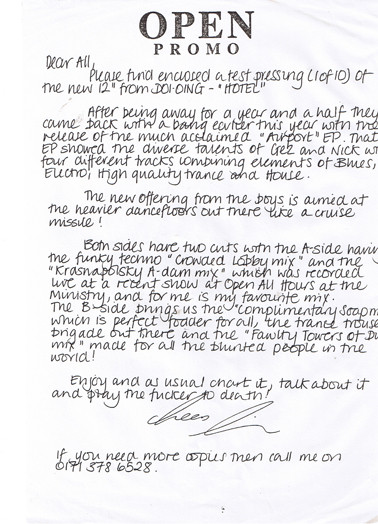 OPEN
PROMO
Dear All,
Please find enclosed a test pressing (1 of 10) of
the new 12" from DOI-OING - "HOTEL"
After being away for a year and a half they
came back with a bang earlier this year with the
release of the much acclaimed "Airport" EP. That
EP showed the diverse talents of Gez and Nick w
four different tracks combining elements of Blues,
Electro, High quality trance and House.
The new offering from the boys is aimed at
the heavier dancefloors out there like a cruise
missile!
Both sides have two cuts with the A-side havin
the funky techno "Crowded Lobby mix" and the
"Krasnapolsky A-dam mix" which was recorded
live at a recent show at Open All Hours at the
Ministry, and for me is my favourite mix.
The B-side brings us the "Complimentary Soap m
which is perfect fodder for all, the trance trouse
brigade out there and the "Fawlty Towers of Du
mix" made for all the blunted people in the
world!
Enjoy and as usual chart it, talk about it
and play the fucker to death!
Cheers
If you need more copies then call me on
0171 378 6528.